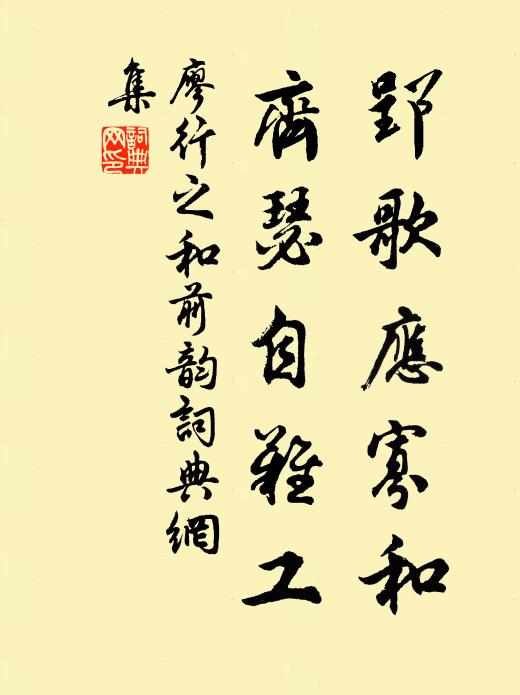 郢歌應寡和
齊瑟自難工
廖行之和前韵詞典網
集
詞典網印